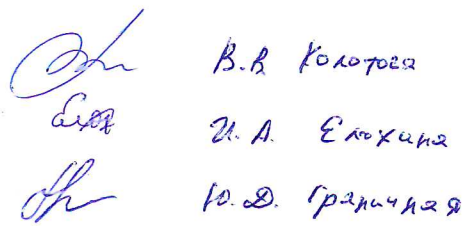 В.В. Колотова
И.А. Елохина
Ю.Д. Граничная